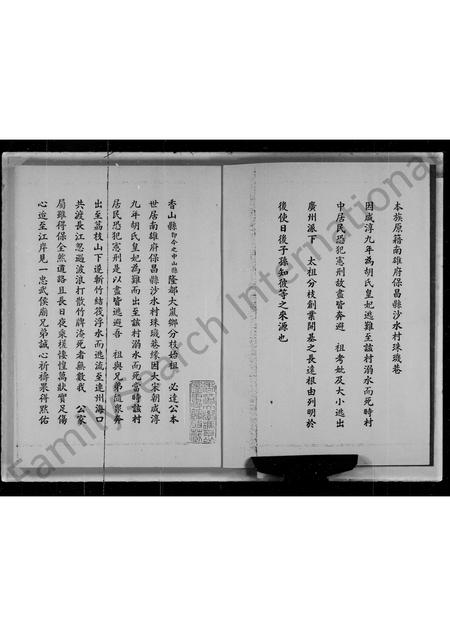 本族原籍南雄府保昌縣沙水村珠璣巷
因咸淳九年為胡氏皇妃逃難至該村溺水而死時村
中居民恐犯憲刑故盡皆奔避 祖考妣及大小逃出
廣州派下 太祖分枝創業開基之長遠根由列明於
後使日後子孫知彼等之來源也
香山縣即今之中山縣隆都大嵐鄉分枝始祖 必達公本
世居南雄府保昌縣沙水村珠璣巷緣因大宋朝咸淳
九年胡氏皇妃為難而出至該村溺水而死當時該村
居民恐犯憲刑是以盡皆逃避吾 祖與兄弟隨眾奔
出至荔枝山下逕斬竹結筏浮水而逃流至連州海口
共渡長江忽避波浪打散竹牌淹死者無數我 公家
屬雖得保全然道路且長日夜乘槎悽惶萬狀實足傷
心迨至江岸見一忠武侯廟兄弟誠心祈禱果得默佑
FamilySearch International